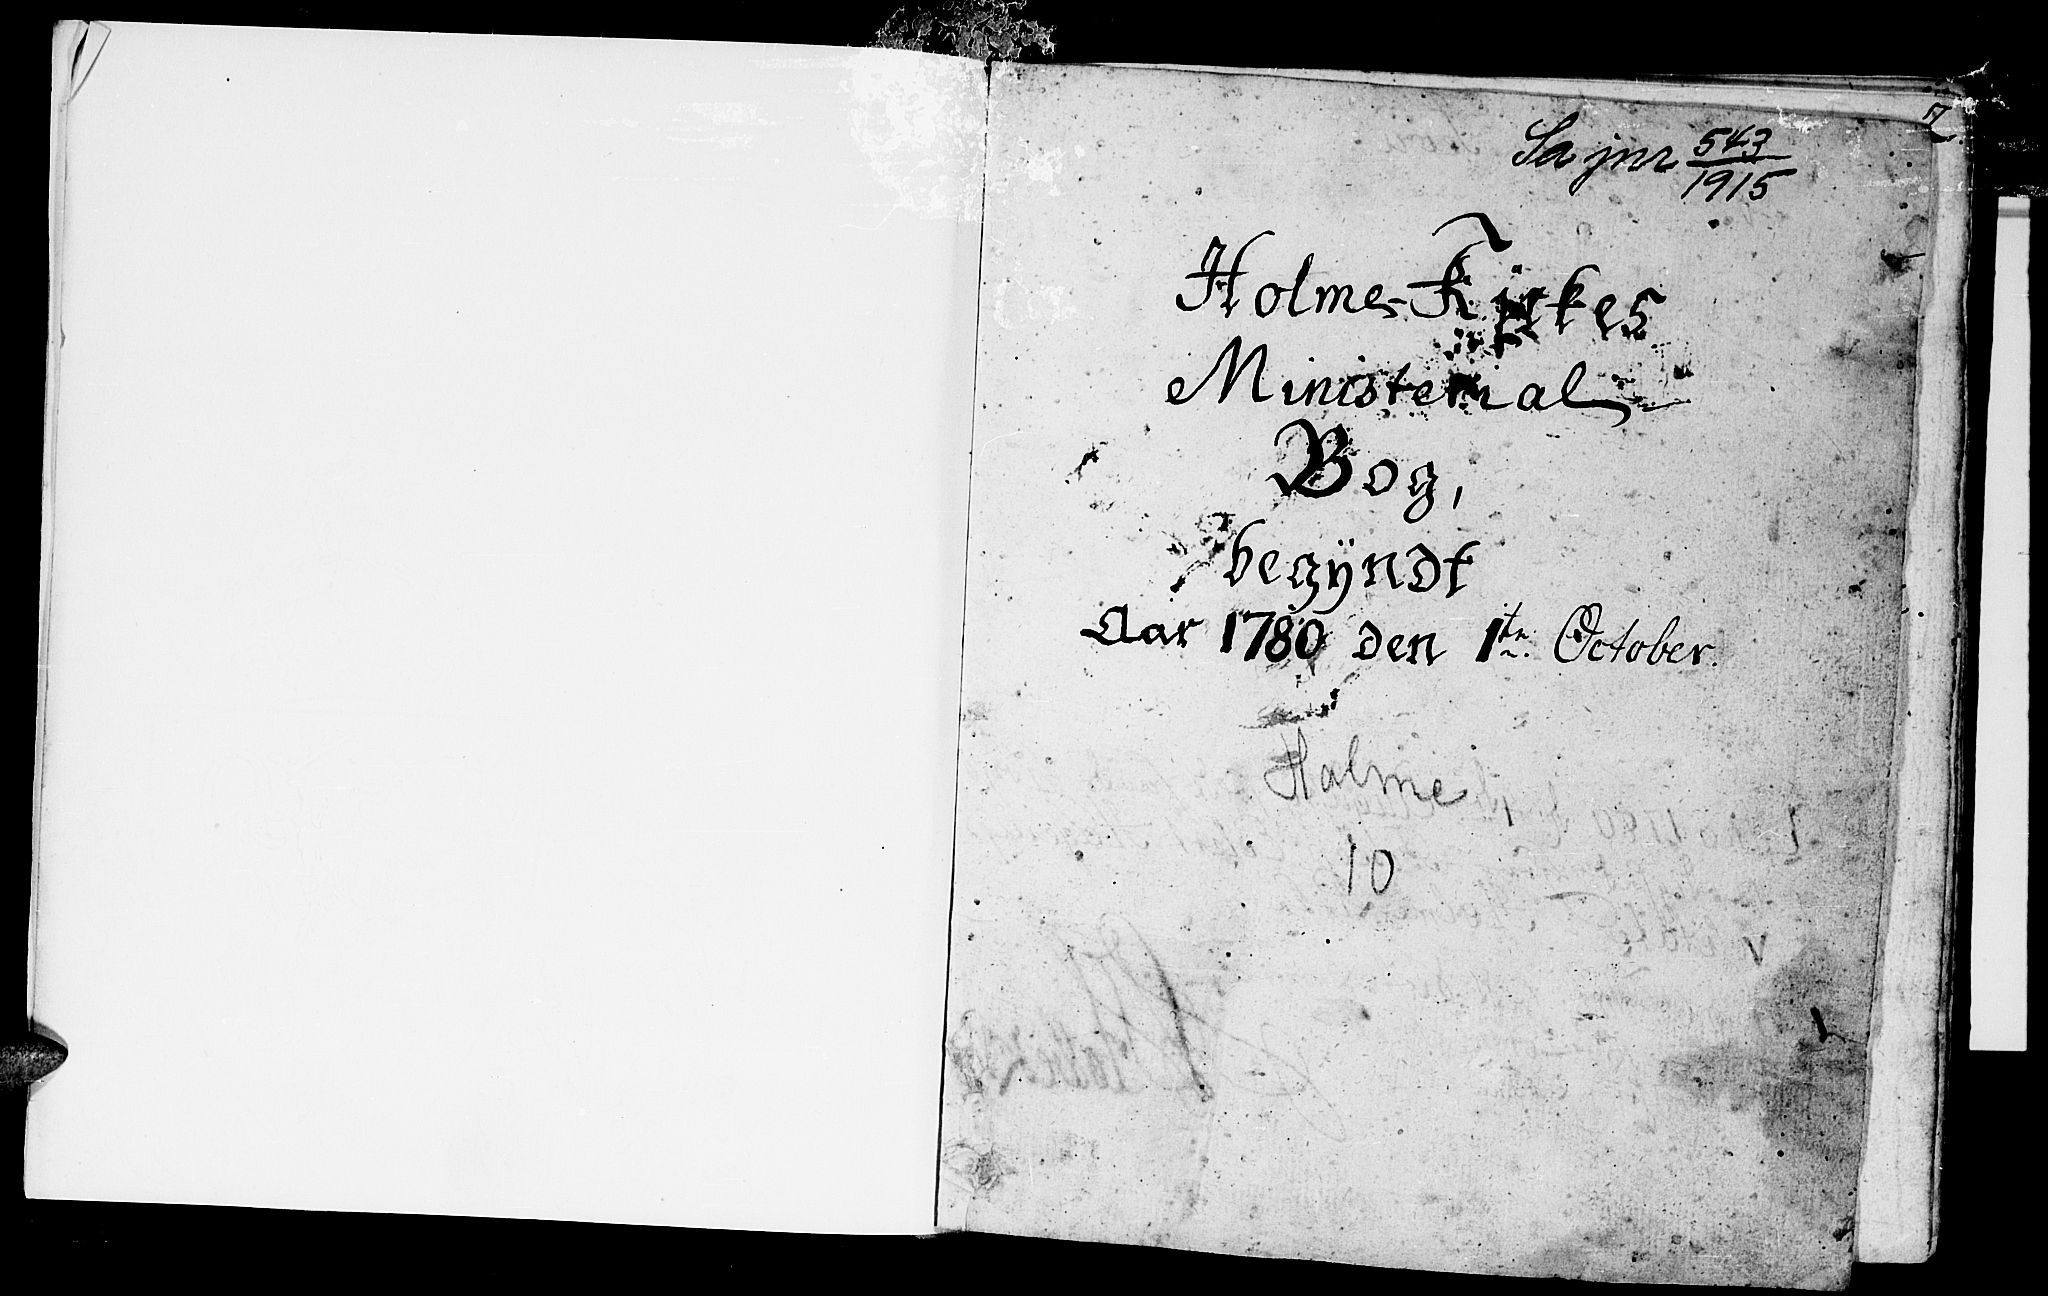 Sa jnr 543/1915
Holme-Kirkes
Ministerial
Bog,
begÿndt
Aar 1780 den 1te October.
Holme
10